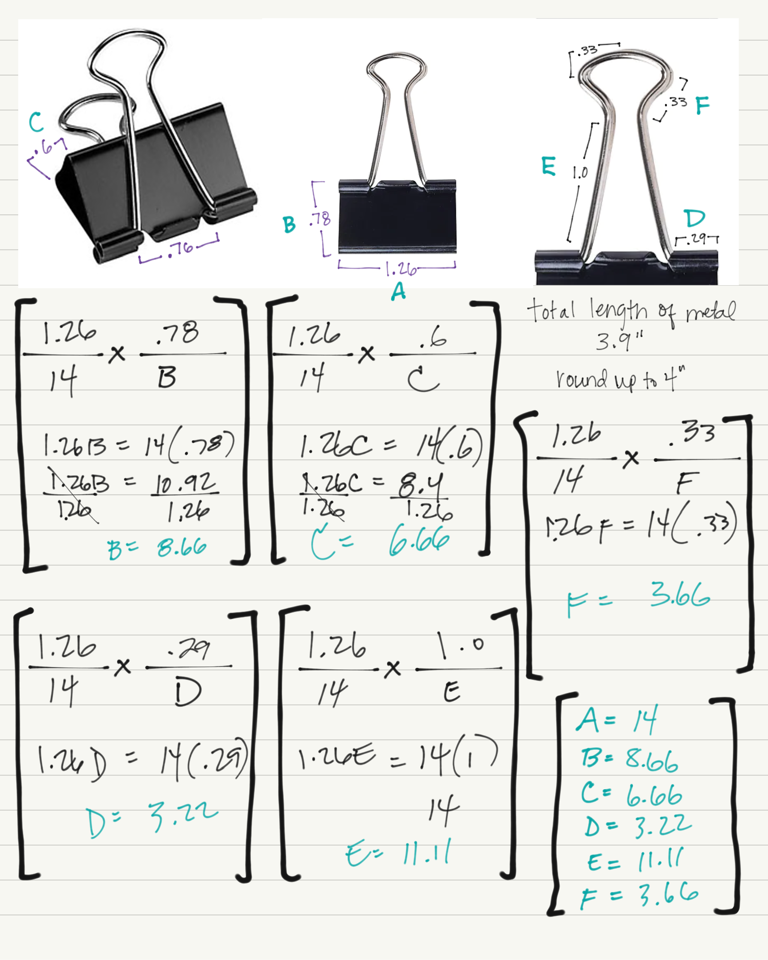 C
.6
.76
B
.78
1.26
A
.33
.33 F
E
1.0
D
.29
total length of metal
3.9"
round up to 4"
1.26 / 14 x .78 / B
1.26B = 14(.78)
1.26B / 1.26 = 10.92 / 1.26
B = 8.66
1.26 / 14 x .6 / C
1.26C = 14(.6)
1.26C / 1.26 = 8.4 / 1.26
C = 6.66
1.26 / 14 x .33 / F
1.26F = 14(.33)
F = 3.66
1.26 / 14 x .29 / D
1.26D = 14(.29)
D = 3.22
1.26 / 14 x 1.0 / E
1.26E = 14(1)
14
E = 11.11
A = 14
B = 8.66
C = 6.66
D = 3.22
E = 11.11
F = 3.66